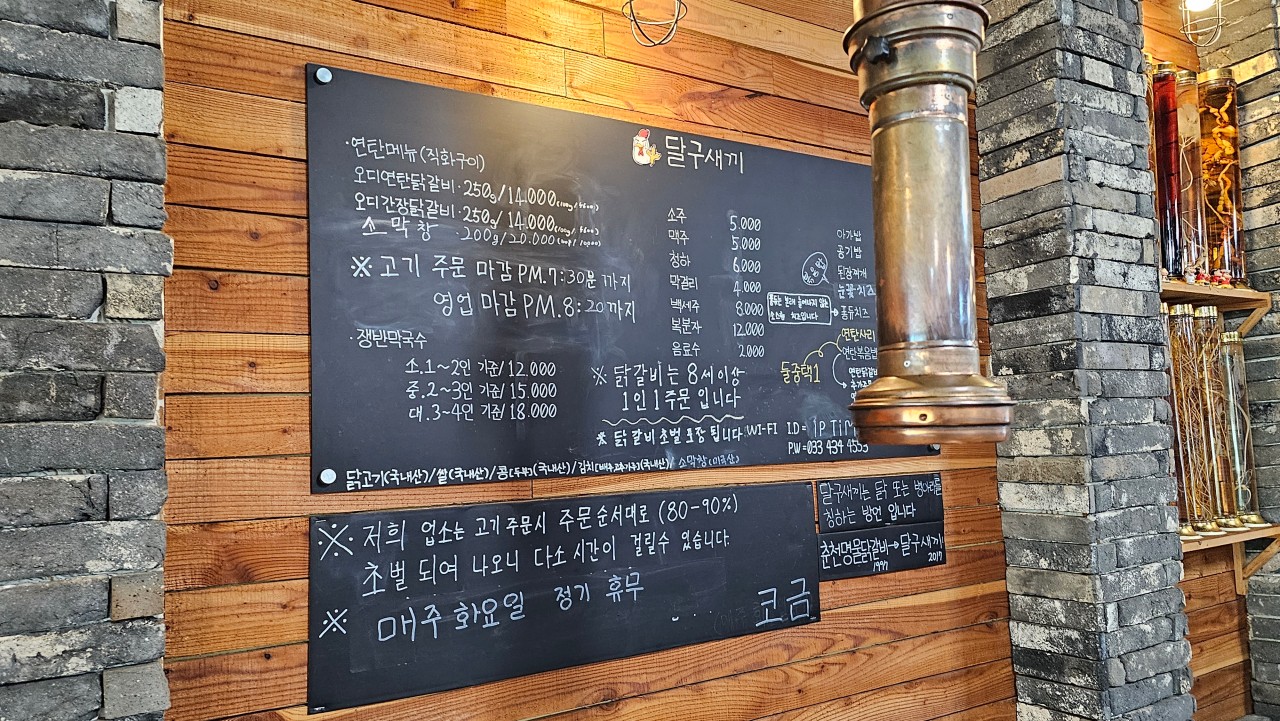 달구새끼
·연탄메뉴(직화구이)
오디연탄닭갈비·250g/14.000
오디간장닭갈비·250g/14.000
소막창 ·200g/20.000
※고기 주문 마감 PM.7:30분 까지
영업 마감 PM.8:20까지
·쟁반막국수
소.1~2인 기준/12.000
중.2~3인 기준/15.000
대.3~4인 기준/18.000
소주 5.000
맥주 5.000
청하 6.000
막걸리 4.000
백세주 8.000
복분자 12.000
음료수 2.000
※ 닭갈비는 8세이상
1인 1주문 입니다
※ 닭갈비 초벌 포장 됩니다
공기밥
된장찌개
눈꽃치즈
퐁듀치즈
연탄사리
둘중택1
WI-FI ID=
P.W=033 434 4553
닭고기(국내산)/쌀(국내산)/콩[두부](국내산)/김치[배추,고추가루](국내산)/소막창(미국산)
※ 저희 업소는 고기 주문시 주문순서대로 (80-90%)
초벌 되여 나오니 다소 시간이 걸릴수 있습니다.
※ 매주 화요일 정기 휴무
코금
달구새끼는 닭 또는 병아리를
칭하는 방언 입니다
춘천명물닭갈비→달구새끼!!
1997 2017